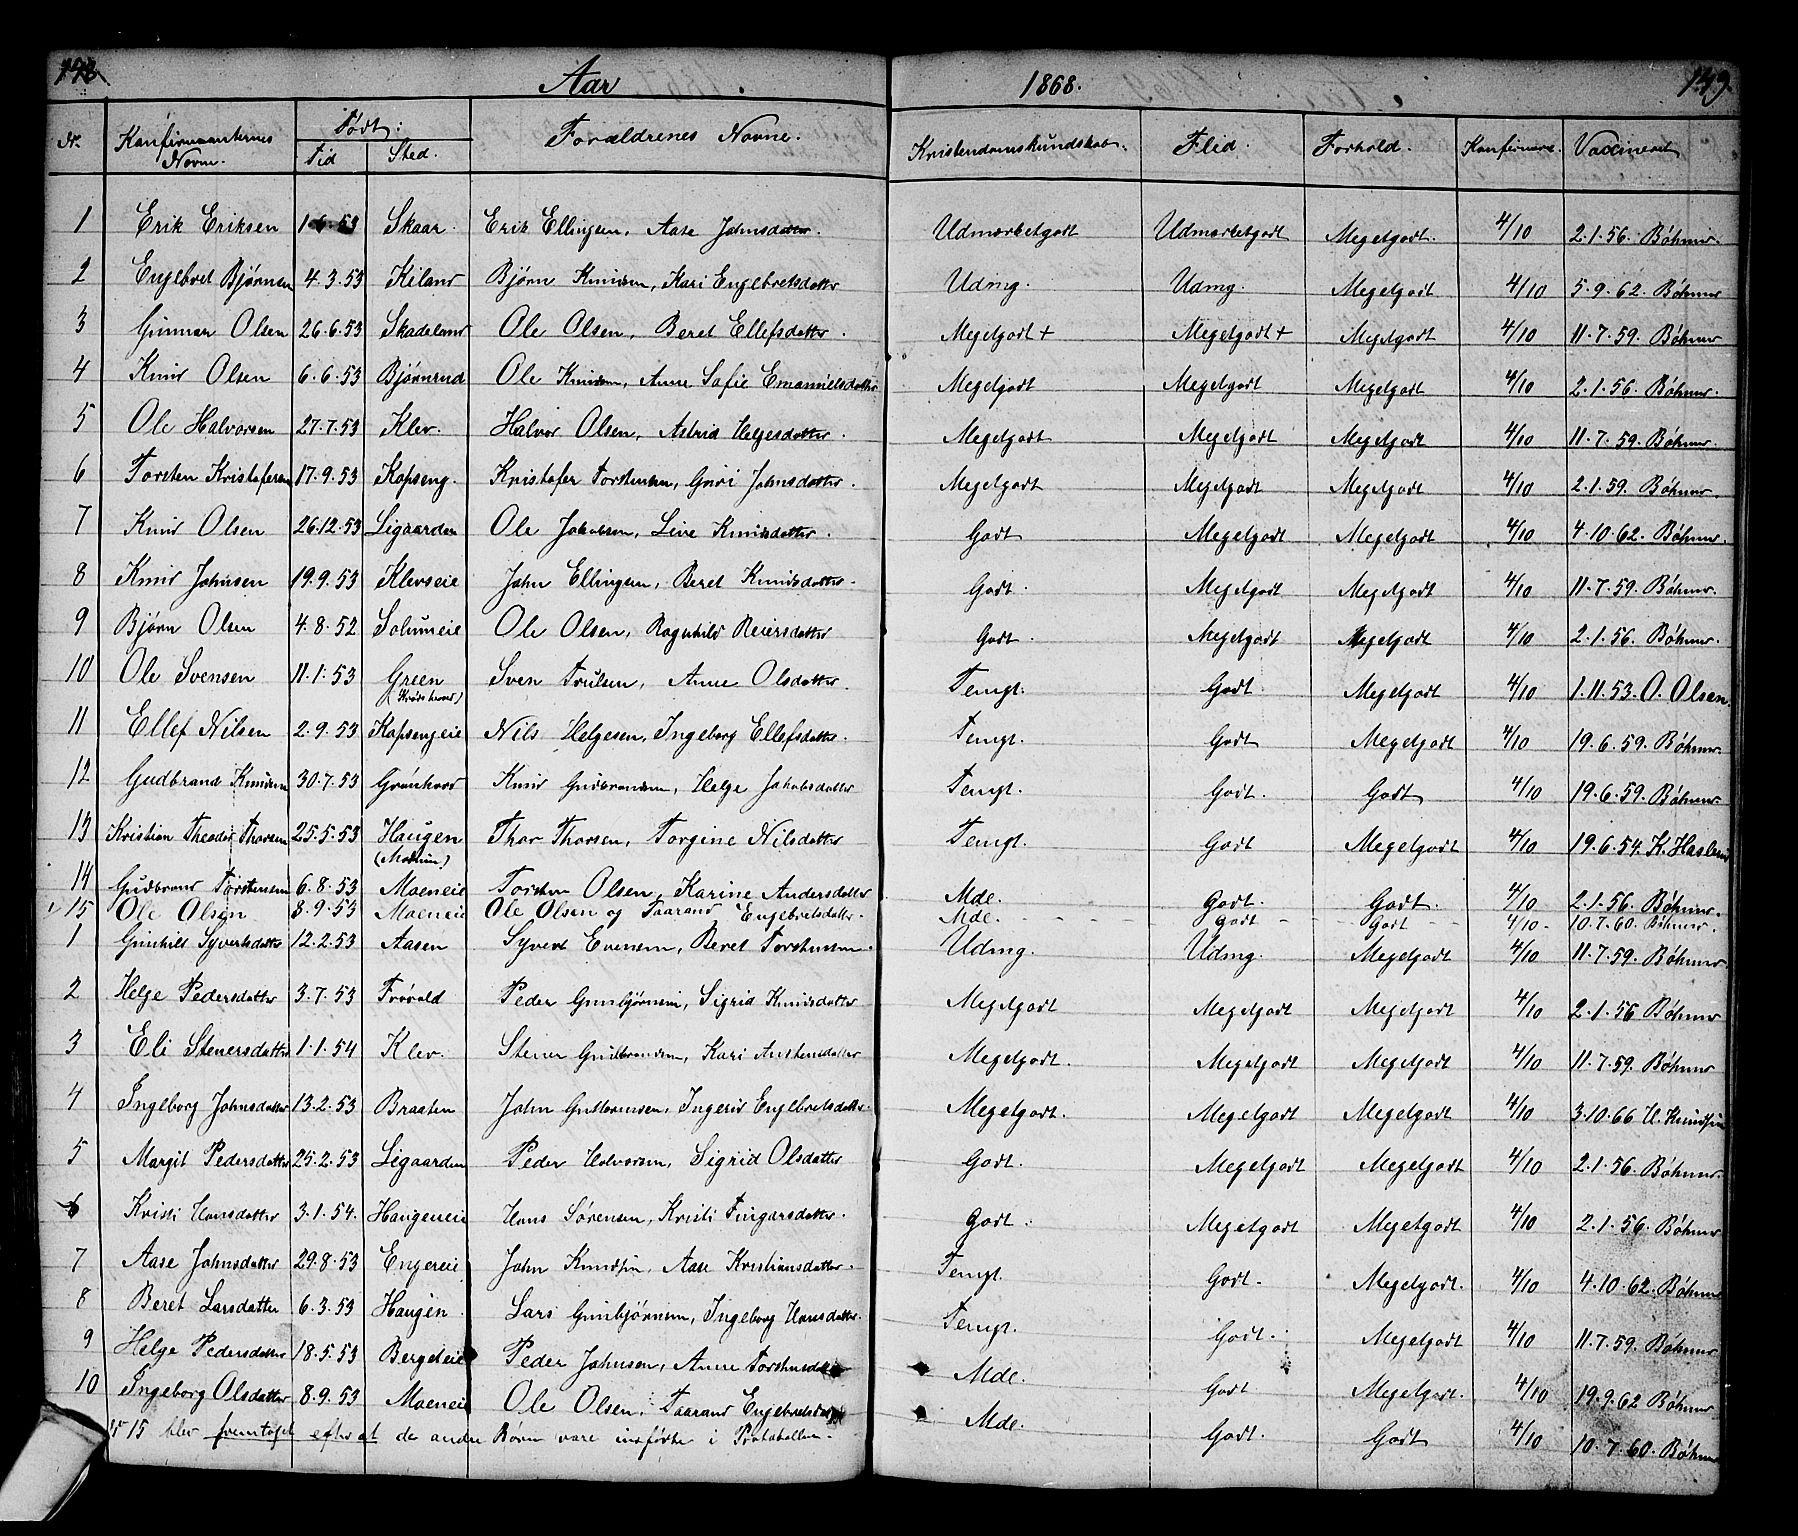 148 Aar 1868. 149.
Nr. Konfirmanternes Navne. Født: Tid Sted. Forældrenes Navne. Kristendomskundskab. Flid. Forhold. Konfirmeret. Vaccineret
1 Erik Eriksen 1·6·53 Skaar. Erik Ellingsen, Aase Johnsdatter. Udmærketgodt Udmærketgodt Megetgodt. 4/10 2·1·56. Bøhmer.
2 Engebret Bjørnsen 4·3·53 Kiland Bjørn Knudsen, Kari Engebretsdatter Udmg. Udmg. Megetgodt 4/10 5·9·62. Bøhmer
3 Gunnar Olsen 26·6·53 Skadeland Ole Olsen, Beret Ellefsdatter. Megetgodt + Megetgodt + Megetgodt 4/10 11·7·59. Bøhmer
4 Knud Olsen 6·6·53 Bjørnrud Ole Knudsen, Anne Sofie Emanuelsdatter Megetgodt Megetgodt Megetgodt 4/10 2·1·56. Bøhmer.
5 Ole Halvorsen 27·7·53 Klev. Halvor Olsen, Astrid Helgesdatter. Megetgodt Megetgodt Megetgodt 4/10 11·7·59. Bøhmer.
6 Torsten Kristofersen 17·9·53 Kopseng. Kristofer Torstensen, Guri Johnsdatter. Megetgodt Megetgodt Megetgodt 4/10 2·1·59. Bøhmer.
7 Knud Olsen 26·12·53 Ligaarden Ole Jakobsen, Live Knudsdatter. Godt Megetgodt Megetgodt 4/10 4·10·62. Bøhmer.
8 Knud Johnsen 19·9·53 Klevseie John Ellingsen, Beret Knudsdatter. Godt. Megetgodt Megetgodt 4/10 11·7·59. Bøhmer.
9 Bjørn Olsen 4·8·52 Solumeie Ole Olsen, Ragnhild Reiersdatter Godt. Megetgodt Megetgodt 4/10 2·1·56. Bøhmer.
10 Ole Svensen 11·1·53 Green Sven Trulsen, Anne Olsdatter. Temgt. Godt. Megetgodt 4/10 1·11·53. O. Olsen
(Krødsherred)
11 Ellef Nilsen 2·9·53 Kopsengeie Nils Helgesen, Ingeborg Ellefsdatter. Temgt. Godt Megetgodt 4/10 19·6·59. Bøhmer.
12 Gudbrand Knudsen 30·7·53 Grønhovd Knud Gudbrandsen, Helge Jakobsdatter Temgt. Godt. Godt 4/10 19·6·59. Bøhmer
13 Kristian Theodor Thorsen 25·5·53 Haugen Thor Thorsen, Torgine Nilsdatter Temgt. Godt Megetgodt 4/10 19·6·54. K. Haslund
(Modum)
14 Gudbrand Torstensen 6·8·53 Moeneie Torsten Olsen, Karine Andersdatter Mde. Godt. Godt. 4/10 2·1·56. Bøhmer.
15 Ole Olsen 8·9·53 Moeneie Ole Olsen og Taarand Engebretsdatter. Mde. Godt Godt 4/10 10·7·60. Bøhmer.
1 Gunhild Syvertsdatter 12·2·53 Aasen Syvert Evensen, Beret Torstensen. Udmg. Udmg. Megetgodt 4/10 11·7·59. Bøhmer.
2 Helge Pedersdatter 3·7·53 Frøvold Peder Gunbjørnsen, Sigrid Knudsdatter Megetgodt Megetgodt Megetgodt 4/10 2·1·56 Bøhmer
3 Eli Stenersdatter 1·1·54 Klev. Stener Gudbrandsen, Kari Austensdatter Megetgodt. Megetgodt Megetgodt 4/10 11·7·59. Bøhmer
4 Ingeborg Johnsdatter 13·2·53 Braaten John Guttormsen, Ingerid Engebretsdatter. Megetgodt. Megetgodt Megetgodt 4/10 3·10·66 H. Knudsen
5 Margit Pedersdatter 25·2·53 Ligaarden Peder Halvorsen, Sigrid Olsdatter Godt. Megetgodt Megetgodt 4/10 2·1·56. Bøhmer.
6 Kristi Hansdatter 3·1·54. Haugeneie Hans Sørensen, Kristi Fingarsdatter. Godt. Megetgodt Megetgodt 4/10 2·1·56. Bøhmer
7 Aase Johnsdatter 29·8·53 Engereie John Knudsen, Aase Kristiansdatter. Temgt. Godt. Megetgodt. 4/10 4·10·62. Bøhmer
8 Beret Larsdatter 6·3·53 Haugen Lars Gunbjørnsen, Ingeborg Hansdatter. Temgt. Godt. Megetgodt 4/10 11·7·59. Bøhmer
9 Helge Pedersdatter 18·5·53 Bergeteie Peder Johnsen, Anne Torstensdatter Mde. Godt Megetgodt. 4/10 19·9·62 Bøhmer
10 Ingeborg Olsdatter 8·9·53 Moeneie Ole Olsen, Taarand Engebretsdatter Mde. Godt. Godt 4/10 10·7·60. Bøhmer
N 15 blev fremtaget efter at de andre Børn vare indførte i Protokollen.